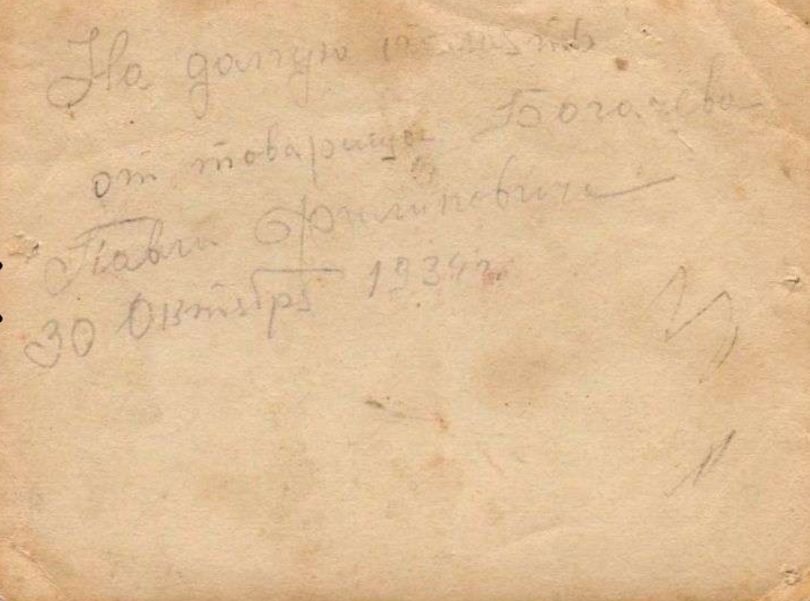 На долгую память
от товарища Богачева
Павла Филиповича
30 Октября 1934 г.